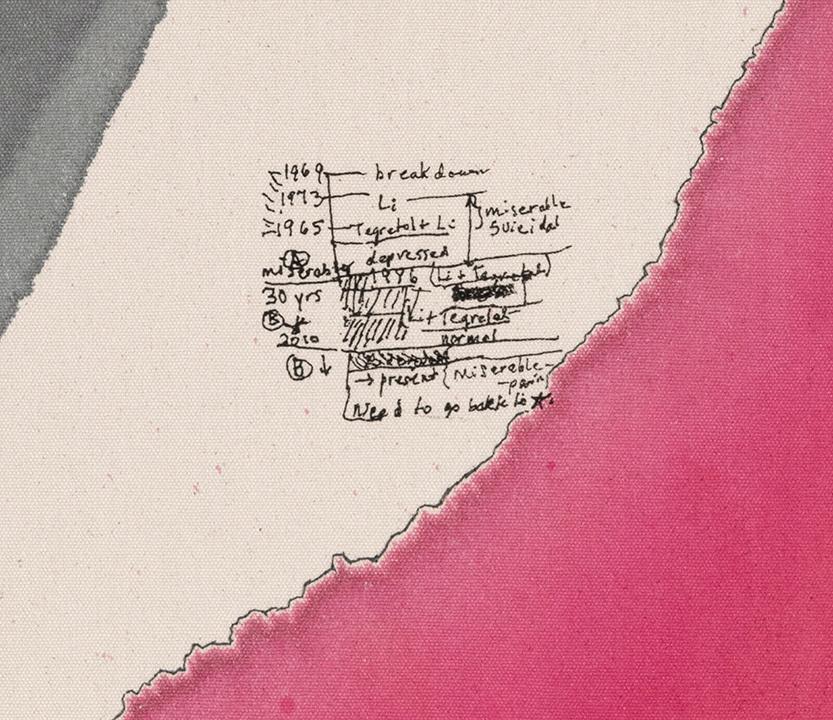 1969 breakdown
1973 Li miserable
1965 Tegretol + Li suicidal
A depressed
miserable 1996 (Li + Tegretol)
30 yrs
B Li + Tegretol
2010 normal
B ↓
→ present {Miserable -
- pain}
Need to go back to ★.